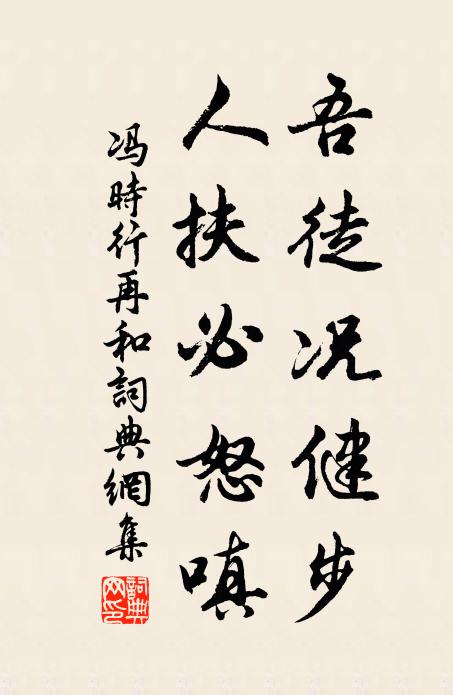 吾徒况健步
人扶必怒嗔
冯時行再和詞典網集
詞典網印